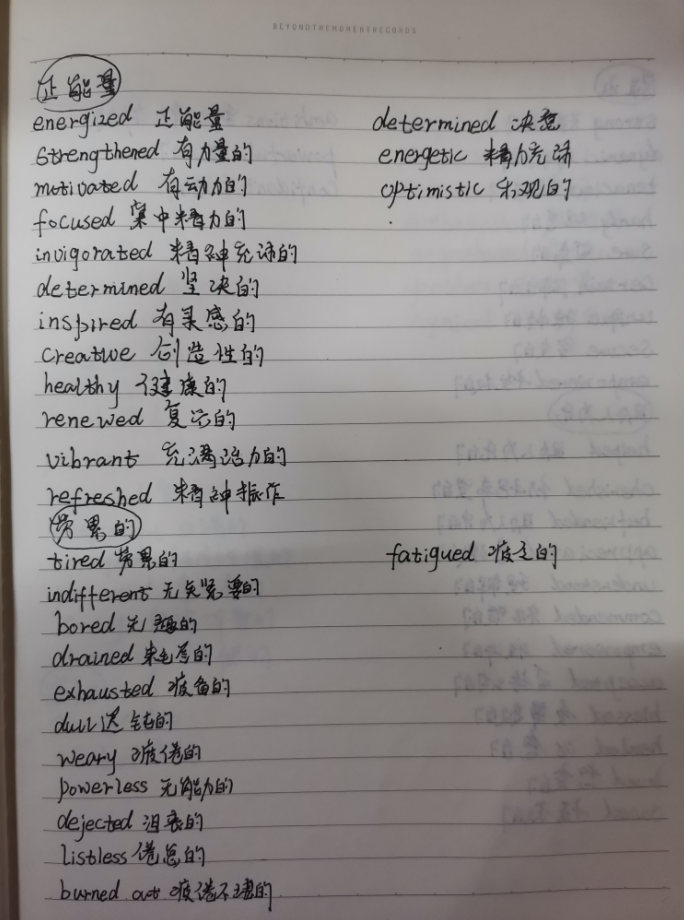 BEYONDTHEMOMENTRECORDS
正能量
energized 正能量 determined 决意
strengthened 有力量的 energetic 精力充沛
motivated 有动力的 optimistic 乐观的
focused 集中精力的
invigorated 精神充沛的
determined 坚决的
inspired 有灵感的
creative 创造性的
healthy 健康的
renewed 复兴的
vibrant 充满活力的
refreshed 精神振作
劳累的
tired 劳累的 fatigued 疲乏的
indifferent 无关紧要的
bored 无趣的
drained 耗尽的
exhausted 疲备的
dull 迟钝的
weary 疲倦的
powerless 无能力的
dejected 沮丧的
listless 倦怠的
burned out 疲倦不堪的